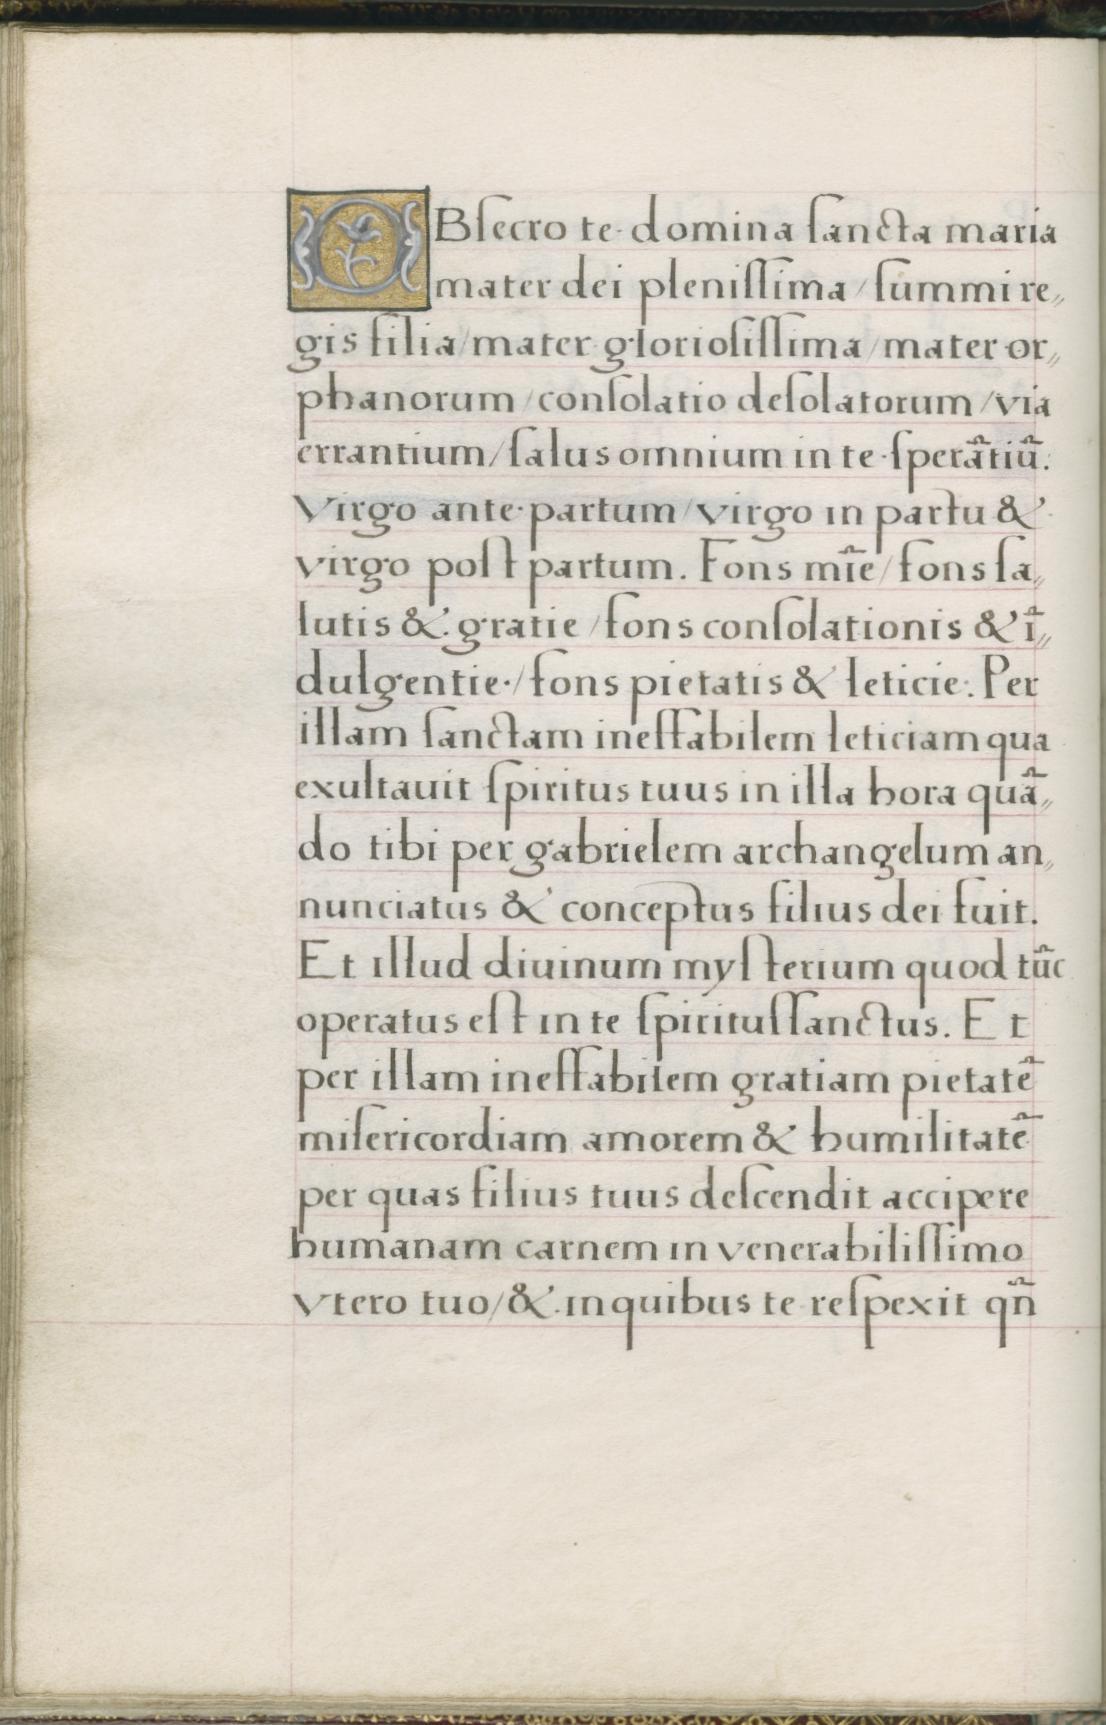 OBſecro te·domina ſancta maria
mater dei pleniſſima / ſummi re„
gis filia/mater glorioſiſſima / mater or„
phanorum / conſolatio deſolatorum / via
errantium/ſalus omnium in te·ſperãtiũ.
Virgo ante·partum / virgo in partu &
virgo poſt partum. Fons mĩe / fons ſa„
lutis &. gratie / fons conſolationis & ĩ„
dulgentie·/ fons pietatis & leticie: Per
illam ſanctam ineffabilem leticiam qua
exultauit ſpiritus tuus in illa hora quã„
do tibi per gabrielem archangelum an„
nunciatus & conceptus filius dei fuit.
Et illud diuinum myſterium quod tũc
operatus eſt in te ſpirituſſanctus. Et
per illam ineffabilem gratiam pietatẽ
miſericordiam amorem & humilitatẽ
per quas filius tuus deſcendit accipere
humanam carnem in venerabiliſſimo
vtero tuo/&. in quibus te reſpexit qñ